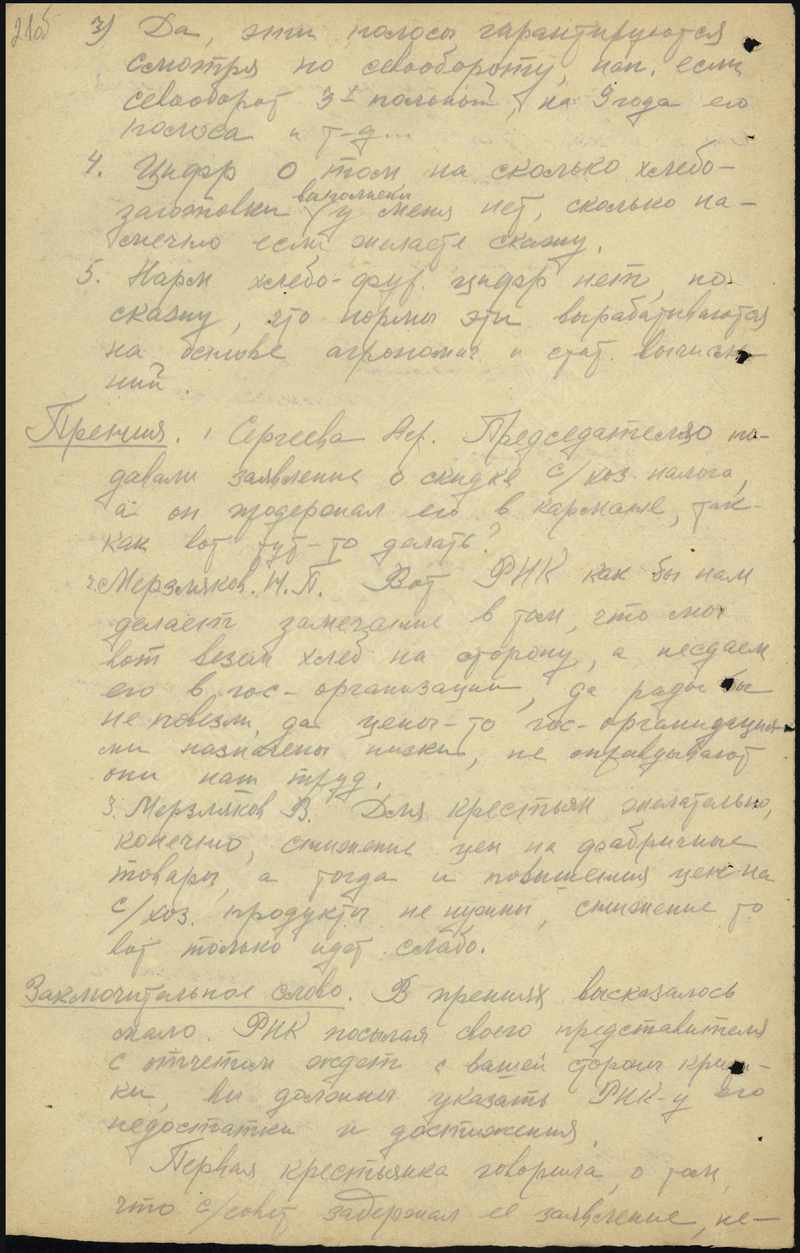 21об
3) Да, эти полосы гарантируются
смотря по севообороту, нап. если
севооборот 3х польный, на 9 года его
полоса и т-д...
4. Цифр о том на сколько хлебо-
заготовки выполнены у меня нет, сколько на-
мечно если желаете скажу.
5. Нарм хлебо-фур. цифр нет, но
скажу, что нормы эти вырабатываются
на основе агрономич и стат. вычисле-
ний.
Прения. 1 Сергеева Аф. Председателю по-
давали заявление о скидке с/хоз. налога,
а он продержал его в кармане, так-
как вот тут-то делать?
2. Мерзляков. Н.П. Вот РИК как бы нам
делает замечание в том, что мы
вот везем хлеб на сторону, а несдаем
его в гос-организации, да рады бы
не повезли, да цены-то гос-организация-
ми назначены низки, не оправдывают
они наш труд.
3. Мерзляков В. Для крестьян желательно,
конечно, снижение цен на фабричные
товары, а тогда и повышения цен на
с/хоз. продукты не нужны, снижение то
вот только идет слабо.
Заключительное слово. В прениях высказалось
мало. РИК посылая своего представителя
с отчетом ждет с вашей стороны крити-
ки, вы должны указать РИК-у его
недостатки и достижения.
Первая крестьянка говорила о том,
что с/совет задержал ее заявление, не-